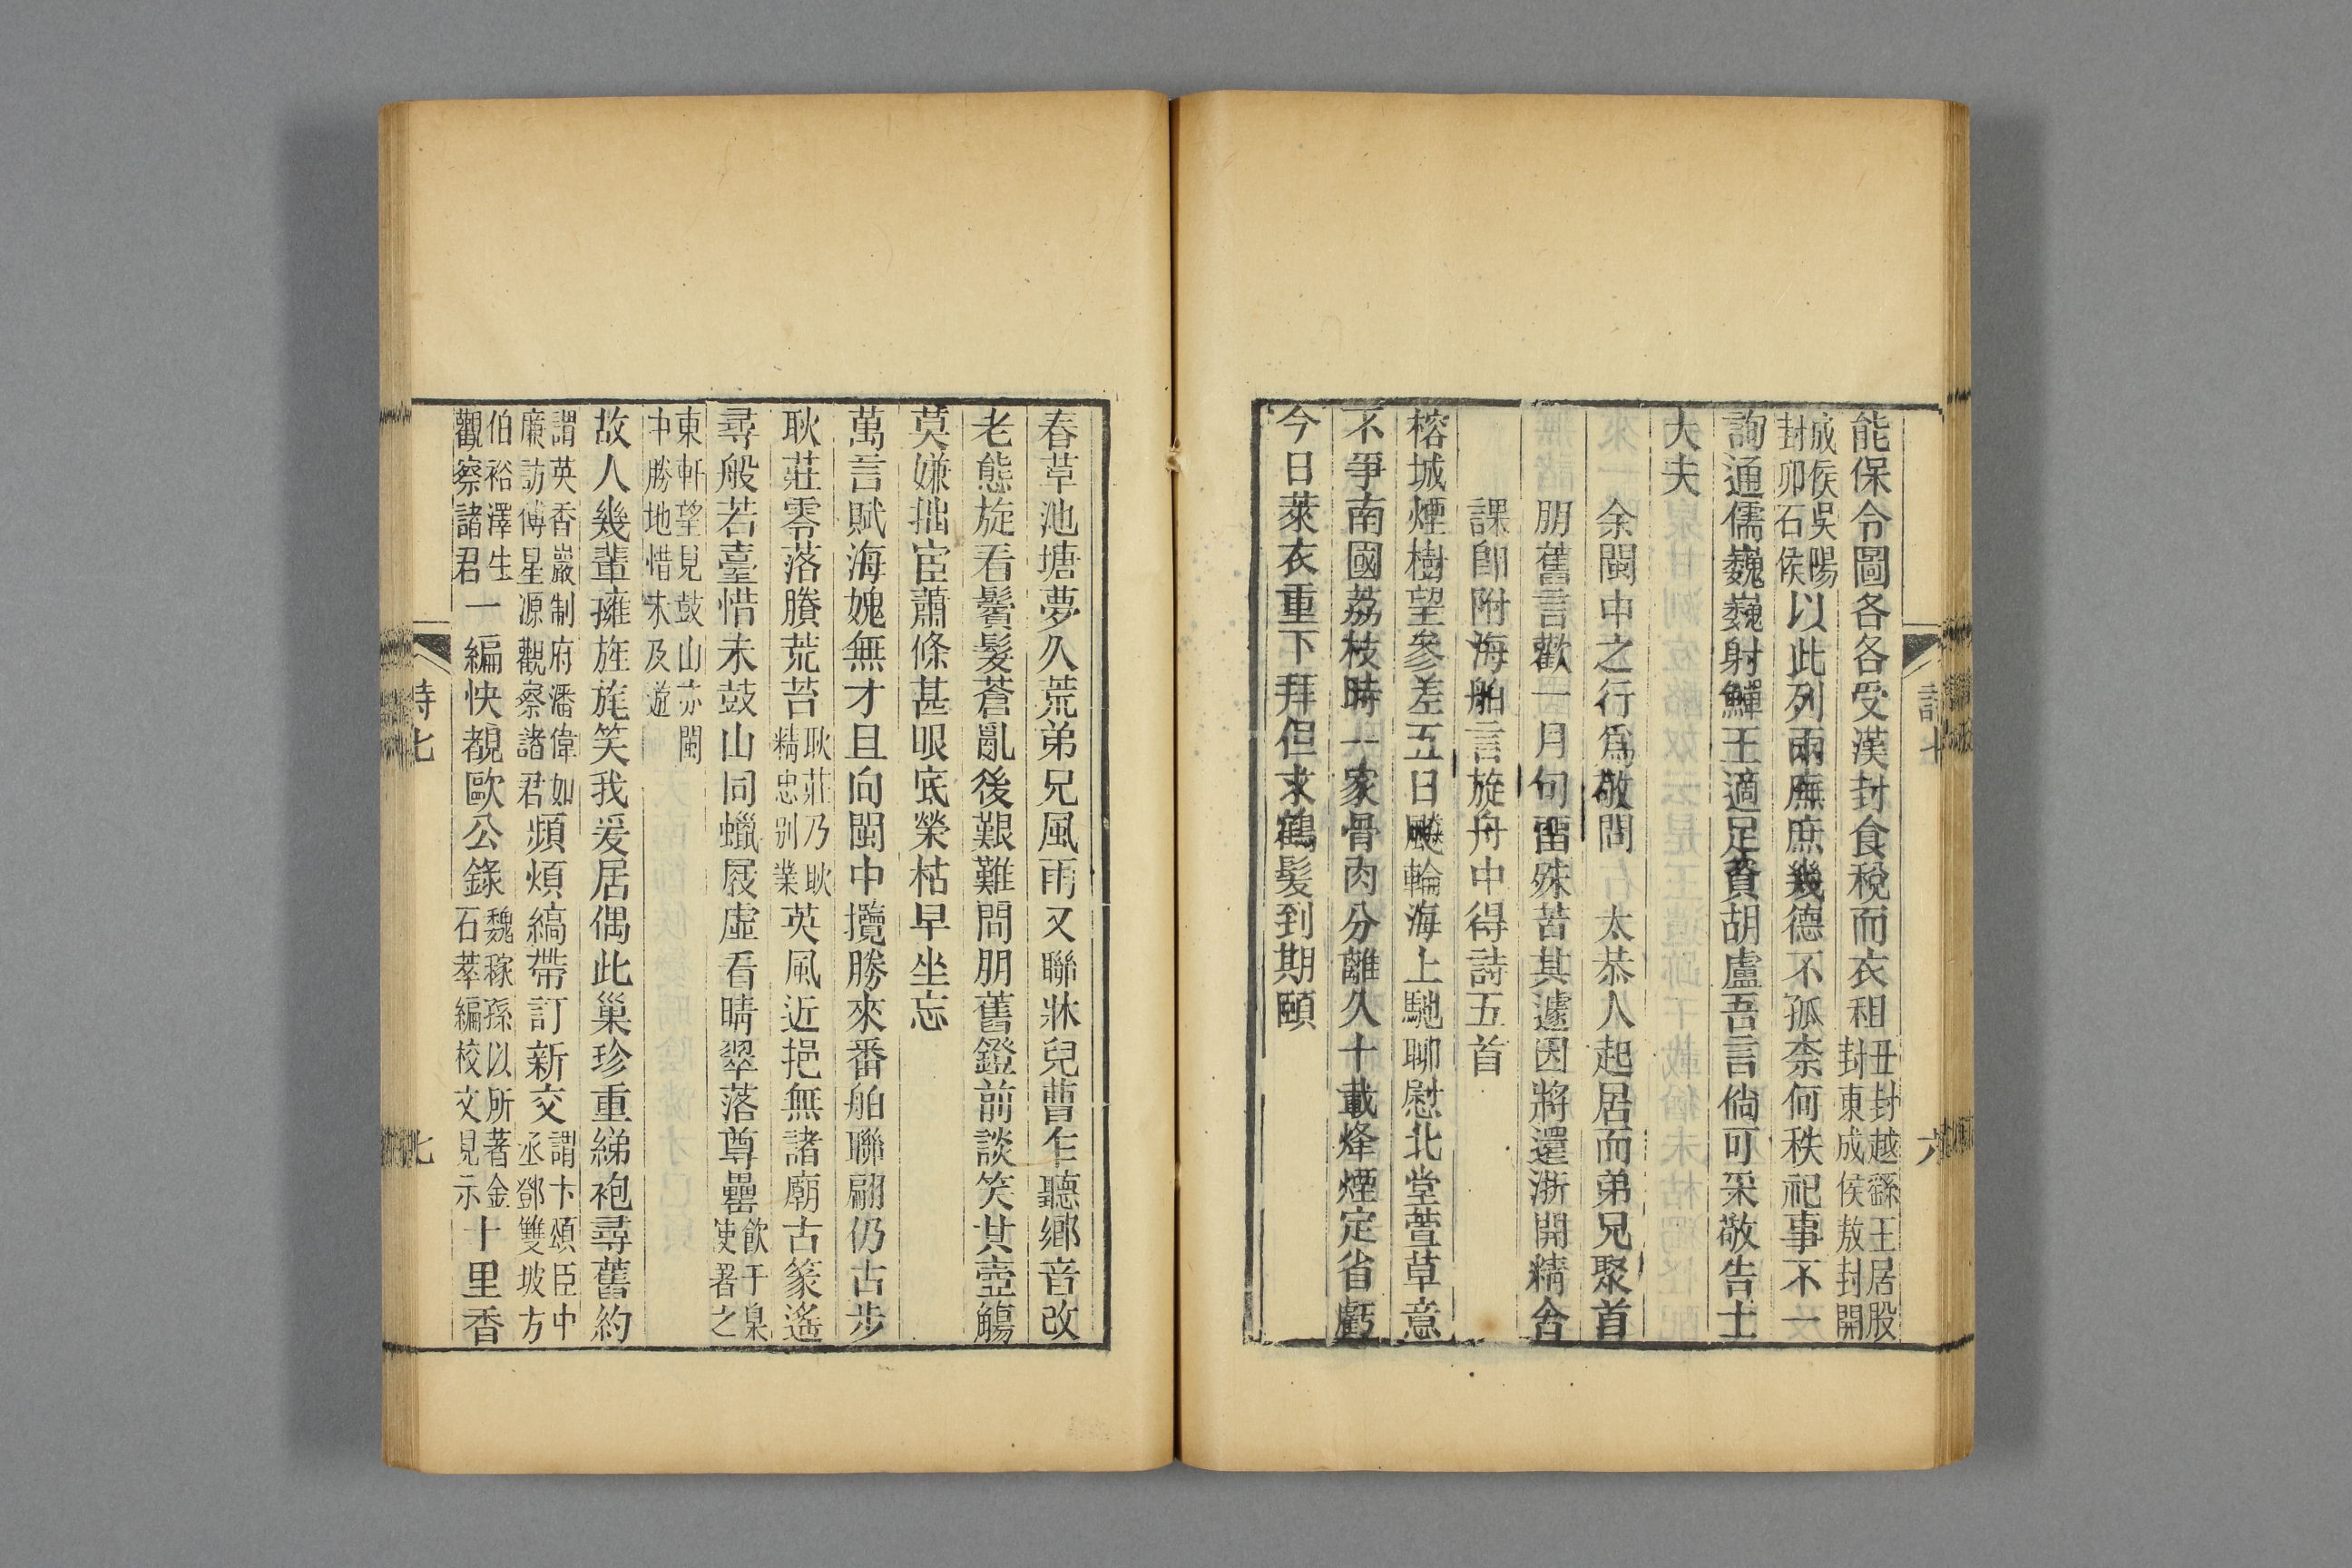 能保令圖各各受漢封食稅而衣租丑封越繇王居股封東成侯敖封開
成侯吳陽封卯石侯以此列兩廡庶幾德不孤柰何秩祀事不一
詢通儒巍巍射鱓王適足資胡盧吾言倘可采敬告士
大夫
余閩中之行爲敬問太恭人起居而弟兄聚首
朋舊言歡一月句留殊苦其遽因將還浙開精舍
課卽附海舶言旋舟中得詩五首
榕城煙樹望參差五日飈輪海上馳聊慰北堂萱草意
不爭南國荔枝時一家骨肉分離久十載烽煙定省虧
今日萊衣重下拜但求鶴髮到期頤
詩七
六
春草池塘夢久荒弟兄風雨又聯牀兒曹乍聽鄉音改
老態旋看鬢髮蒼亂後艱難問朋舊鐙前談笑共壺觴
莫嫌拙宦蕭條甚眼底榮枯早坐忘
萬言賦海媿無才且向閩中攬勝來番舶聯翩仍古步
耿莊零落賸荒苔耿莊乃耿精忠別業英風近挹無諸廟古篆遙
尋般若臺惜未鼓山同蠟屐虛看晴翠落尊罍飲于臬使署之
東軒望見鼓山亦閩中勝地惜未及遊
故人幾輩擁旌旄笑我爰居偶此巢珍重綈袍尋舊約
謂英香巖制府潘偉如廉訪傅星源觀察諸君頻煩縞帶訂新交謂卞頌臣中丞鄧雙坡方
伯裕澤生觀察諸君一編快覩歐公錄魏稼孫以所著金石萃編校文見示十里香
詩七
七